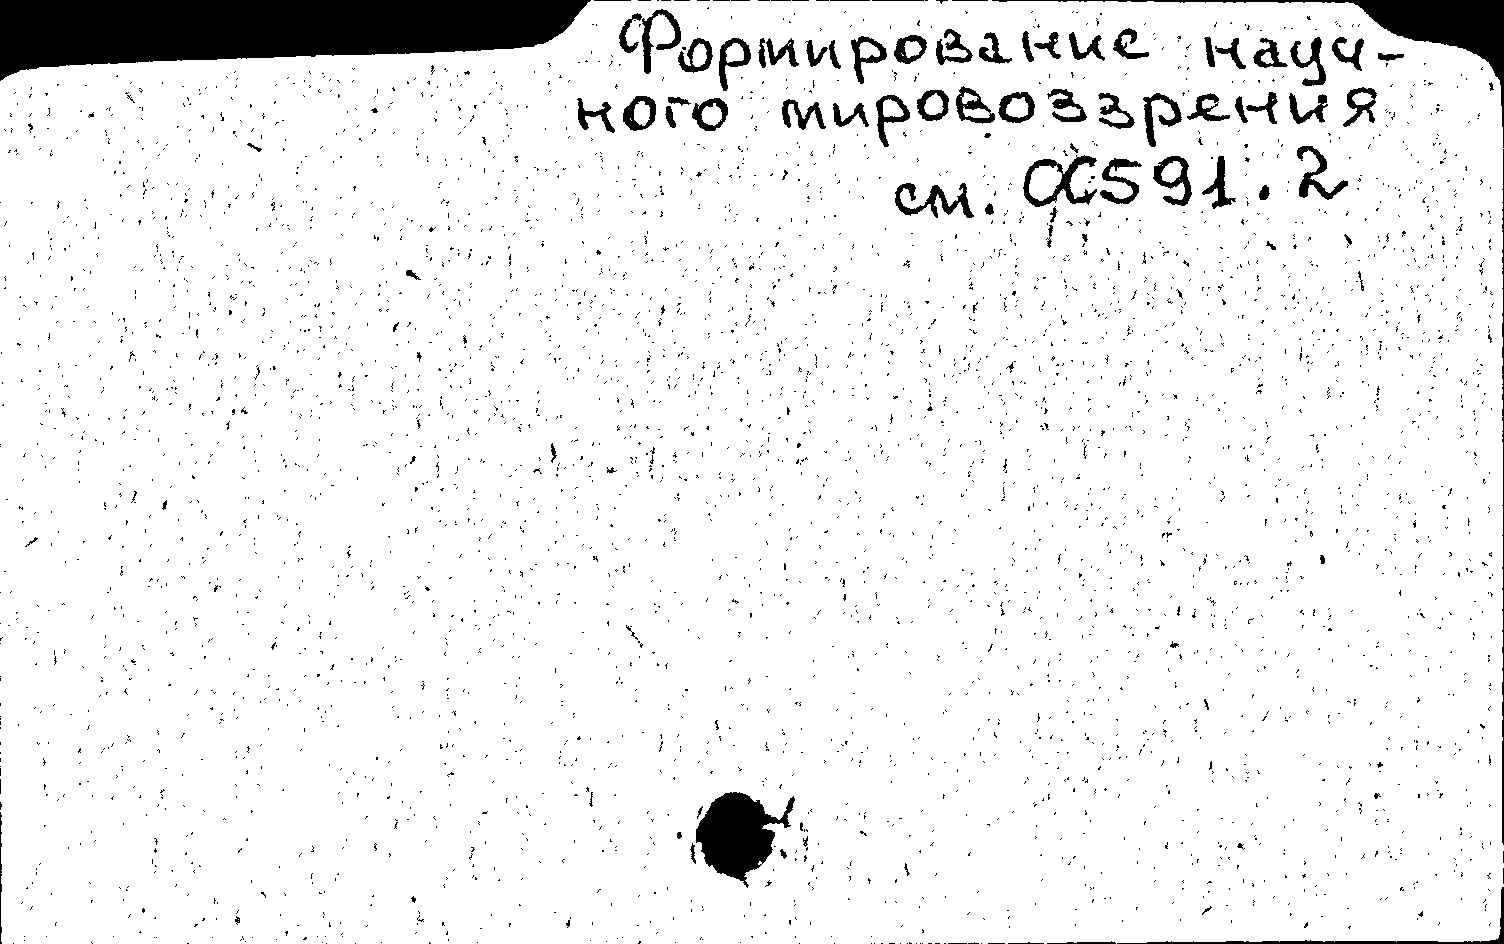 Формирование науч-
ного мировоззрения
см. Ж591.2